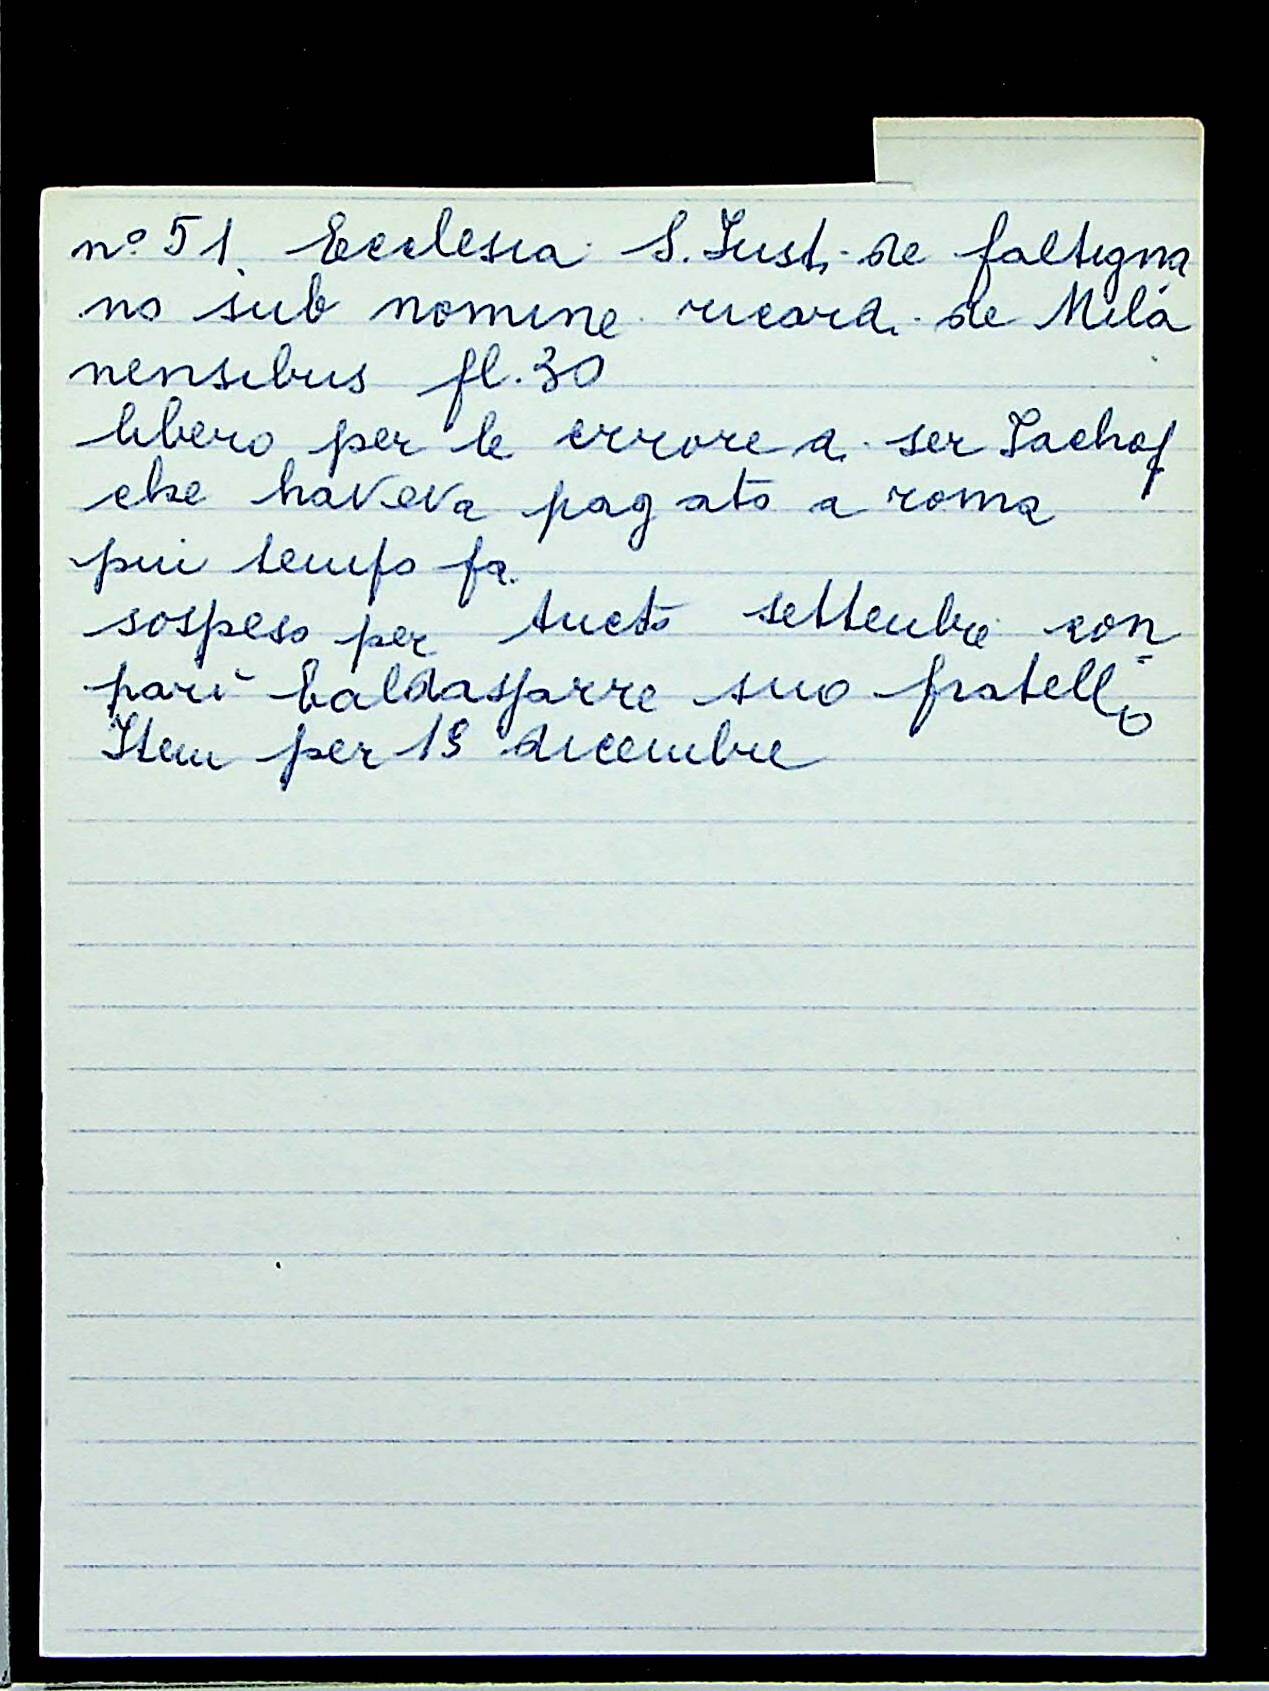 n° 51. Ecclesia S. Just. de faltigna
no sub nomine ricard. de Mila
nensibus fl. 30
libero per le errore a ser Jachof
che haveva pagato a roma
piu tempo fa.
sospeso per tucto settenbre con
pari baldasparre suo fratello
Item per 19 dicembre